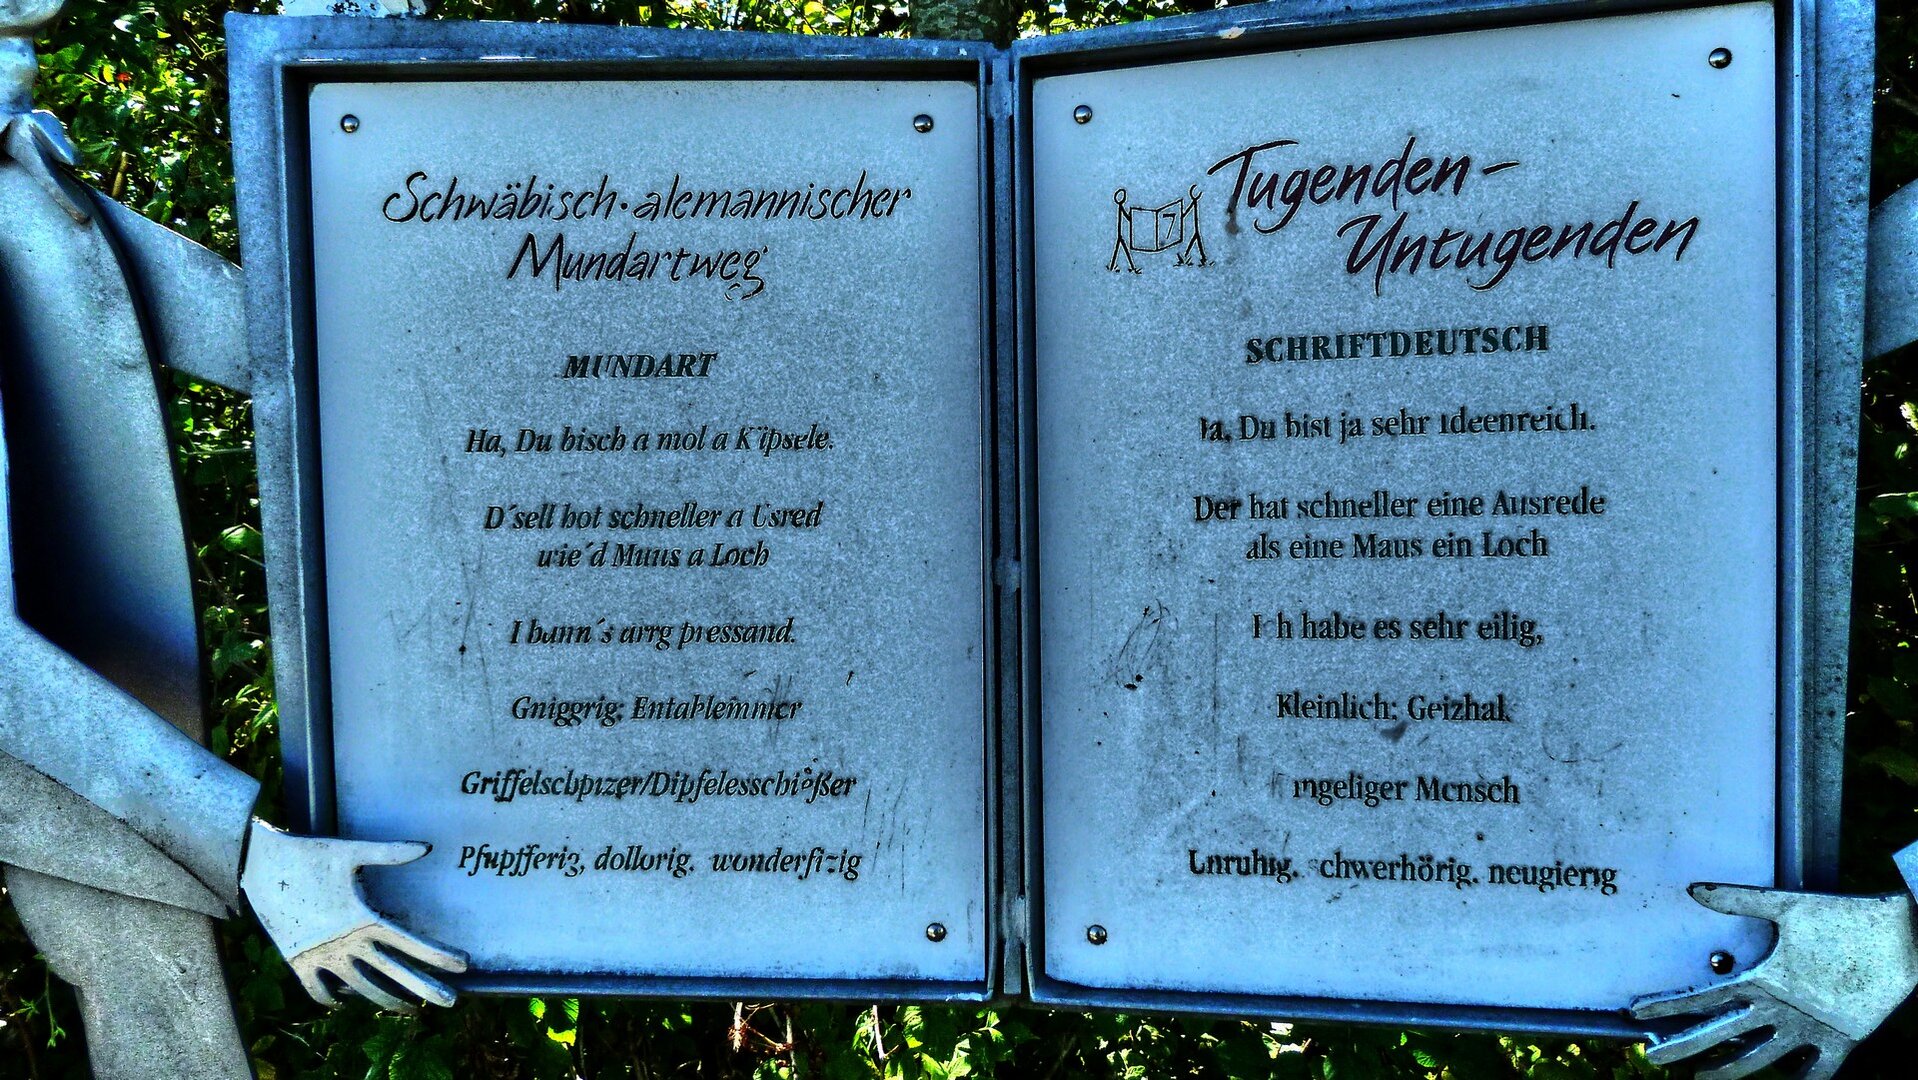 Schwäbisch-alemannischer
Mundartweg
MUNDART
Ha, Du bisch a mol a Käpsele.
D´sell hot schneller a Usred
wie´d Muus a Loch
I hann´s arrg pressand.
Gniggrig; Entaklemmer
Griffelschpizer/Dipfelesschießer
Pfupfferig, dollorig, wonderfizig
7
Tugenden-
Untugenden
SCHRIFTDEUTSCH
Ja, Du bist ja sehr ideenreich.
Der hat schneller eine Ausrede
als eine Maus ein Loch
Ich habe es sehr eilig,
Kleinlich; Geizhals
Mensch
Unruhig, schwerhörig, neugierig